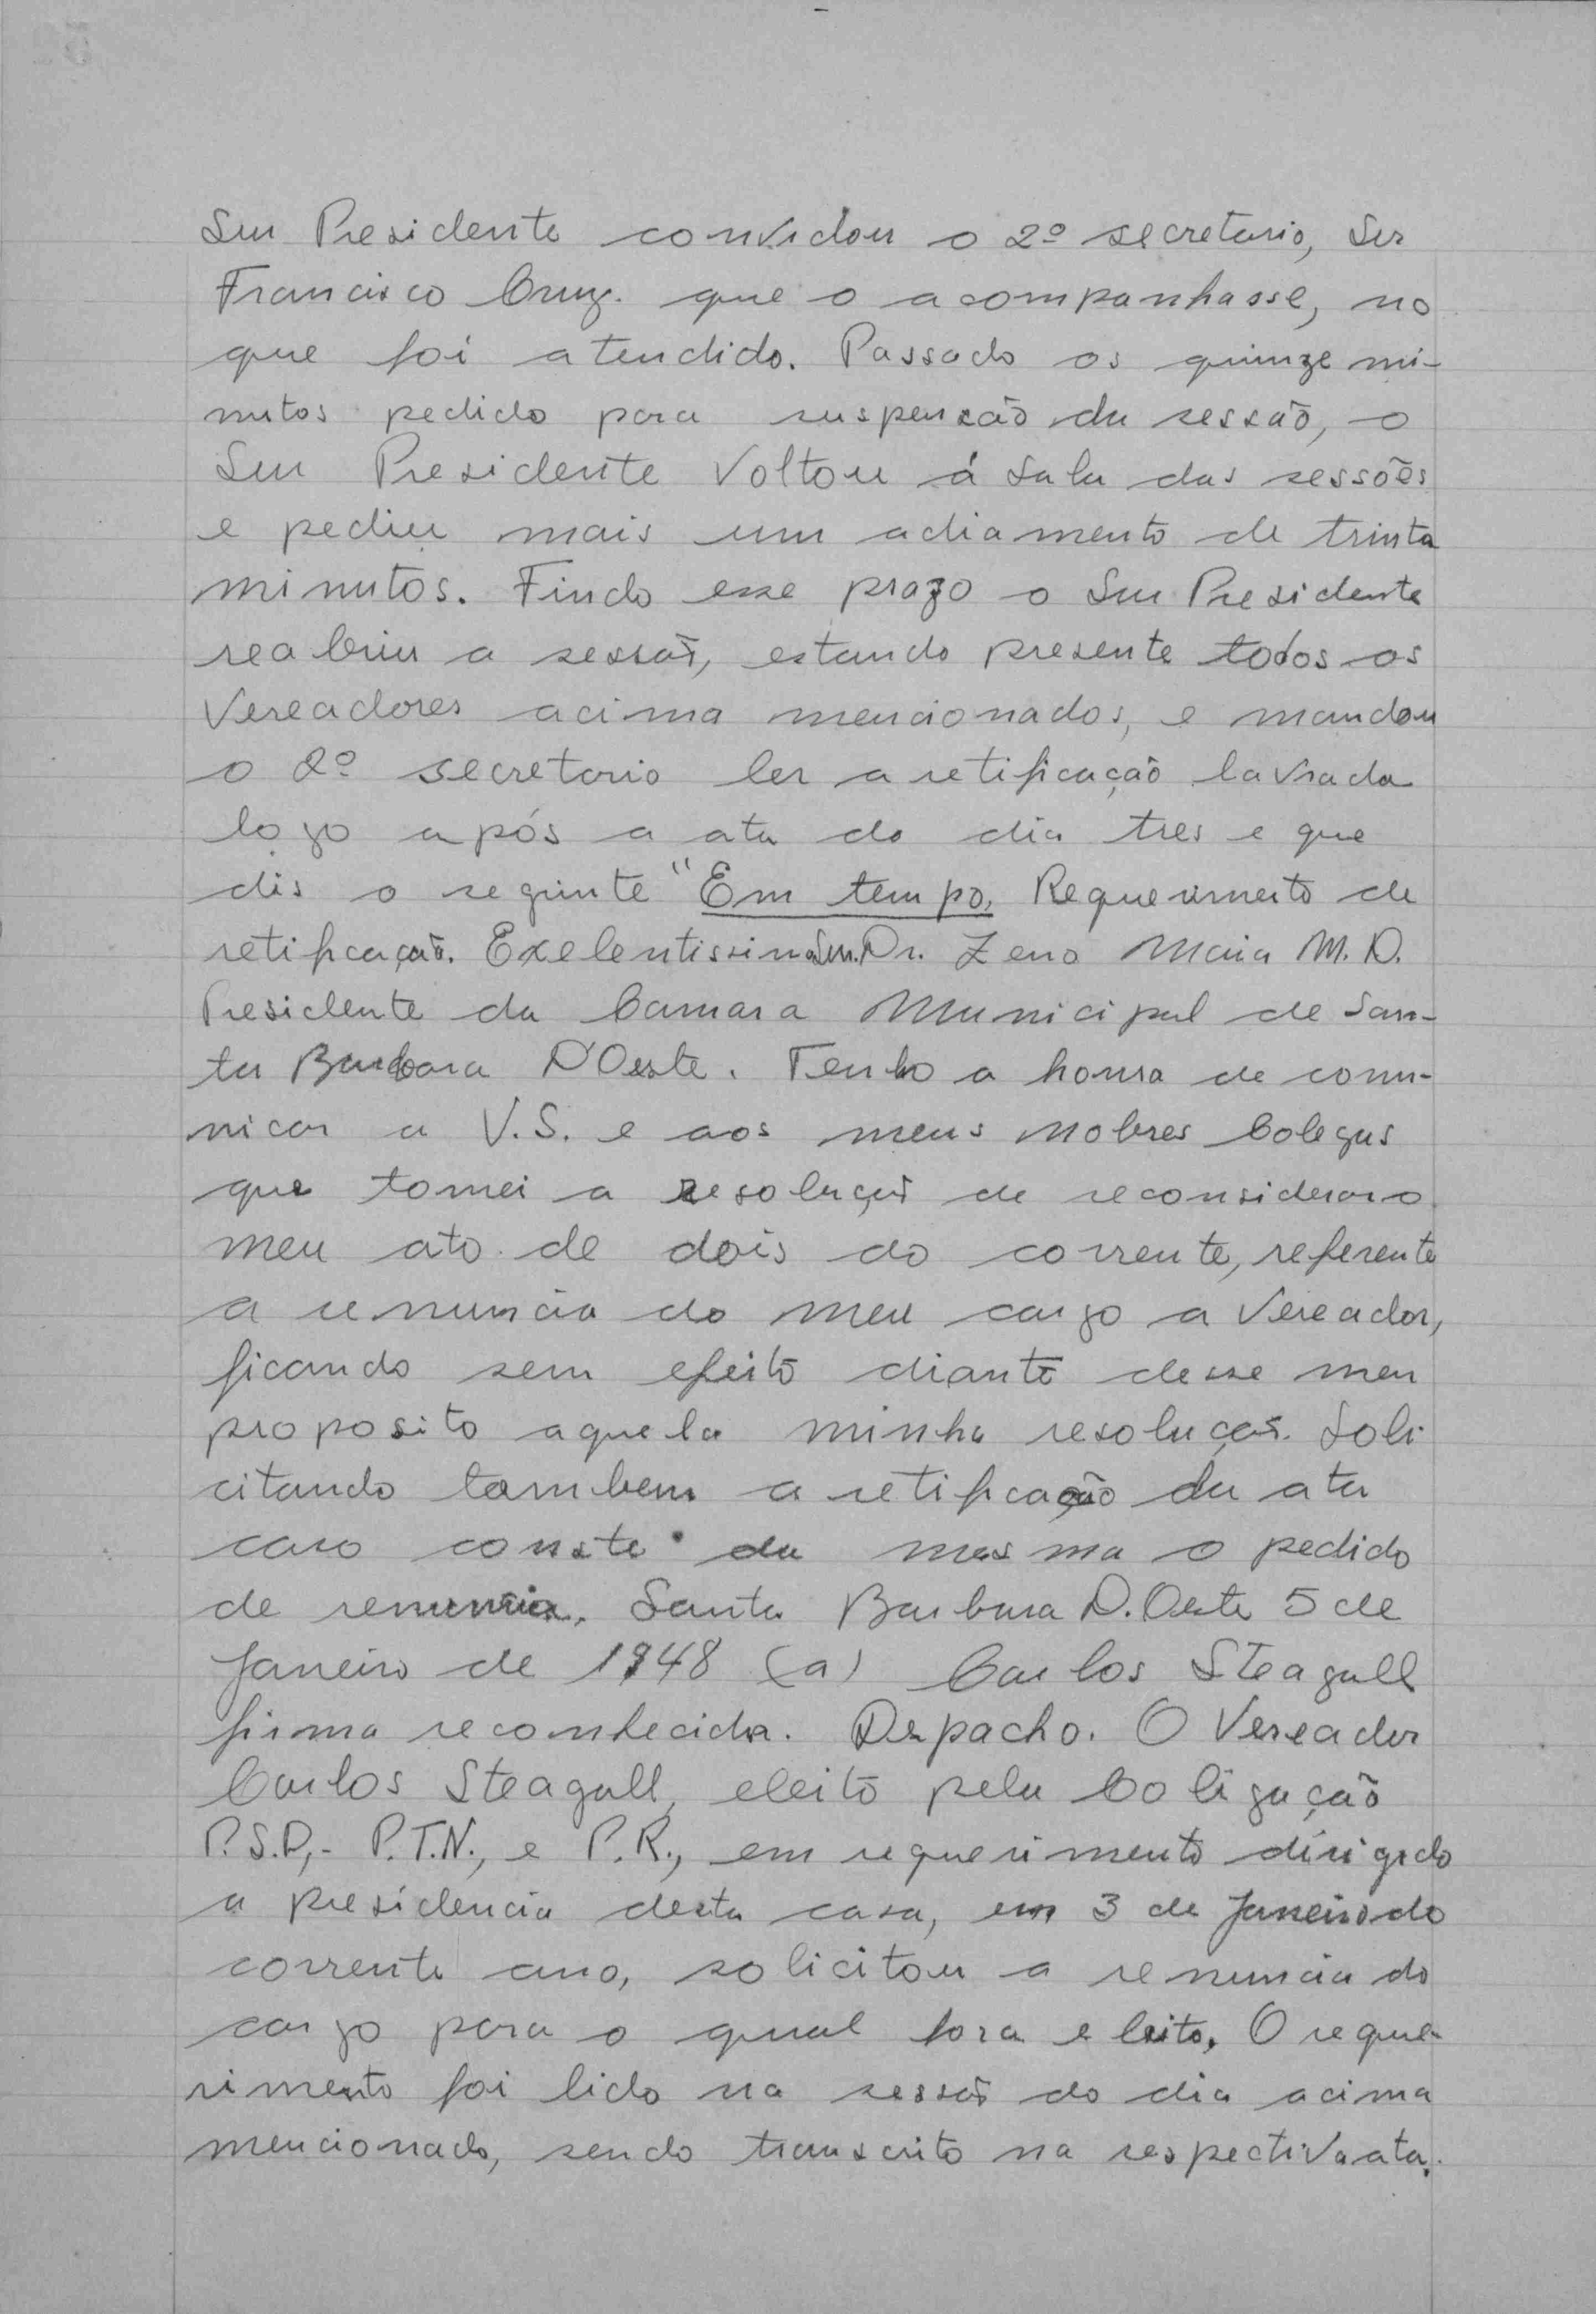 Snr Presidente convidou o 2º secretario, Snr
Francisco Cruz. que o acompanhasse, no
que foi atendido. Passado os quinze mi-
nutos pedido para suspenção da sessão, o
Snr Presidente Voltou á Sala das sessões
e pediu mais um adiamento de trinta
minutos. Findo esse prazo o Snr Presidente
reabriu a sessão, estando presente todos os
Vereadores acima mencionados, e mandou
o 2º secretario ler a retificação lavrada
logo após a ata do dia tres e que
dis o seguinte "Em tempo, Requerimento de
retificação. Exelentissimo Snr. Dr. Zeno Maia M. D.
Presidente da Camara Municipal de San-
ta Barbara D'Oeste. Tenho a honra de comu-
nicar a V.S. e aos meus nobres Colegas
que tomei a resolução de reconsiderar o
meu ato de dois do corrente, referente
a renuncia do meu cargo a Vereador,
ficando sem efeito diante desse meu
proposito aquela minha resolução. Soli
citando tambem a retificação da ata
caso conste da mesma o pedido
de renuncia. Santa Barbara D. Oeste 5 de
Janeiro de 1948 (a) Carlos Steagall
firma reconhecida. Depacho. O Vereador
Carlos Steagall, eleito pela Coligação
P.S.P,- P.T.N., e P.R., em requerimento dirigido
a presidencia desta casa, em 3 de Janeiro do
corrente ano, solicitou a renuncia do
cargo para o qual fora eleito. O reque-
rimento foi lido na sessão do dia acima
mencionado, sendo transcrito na respectiva ata.